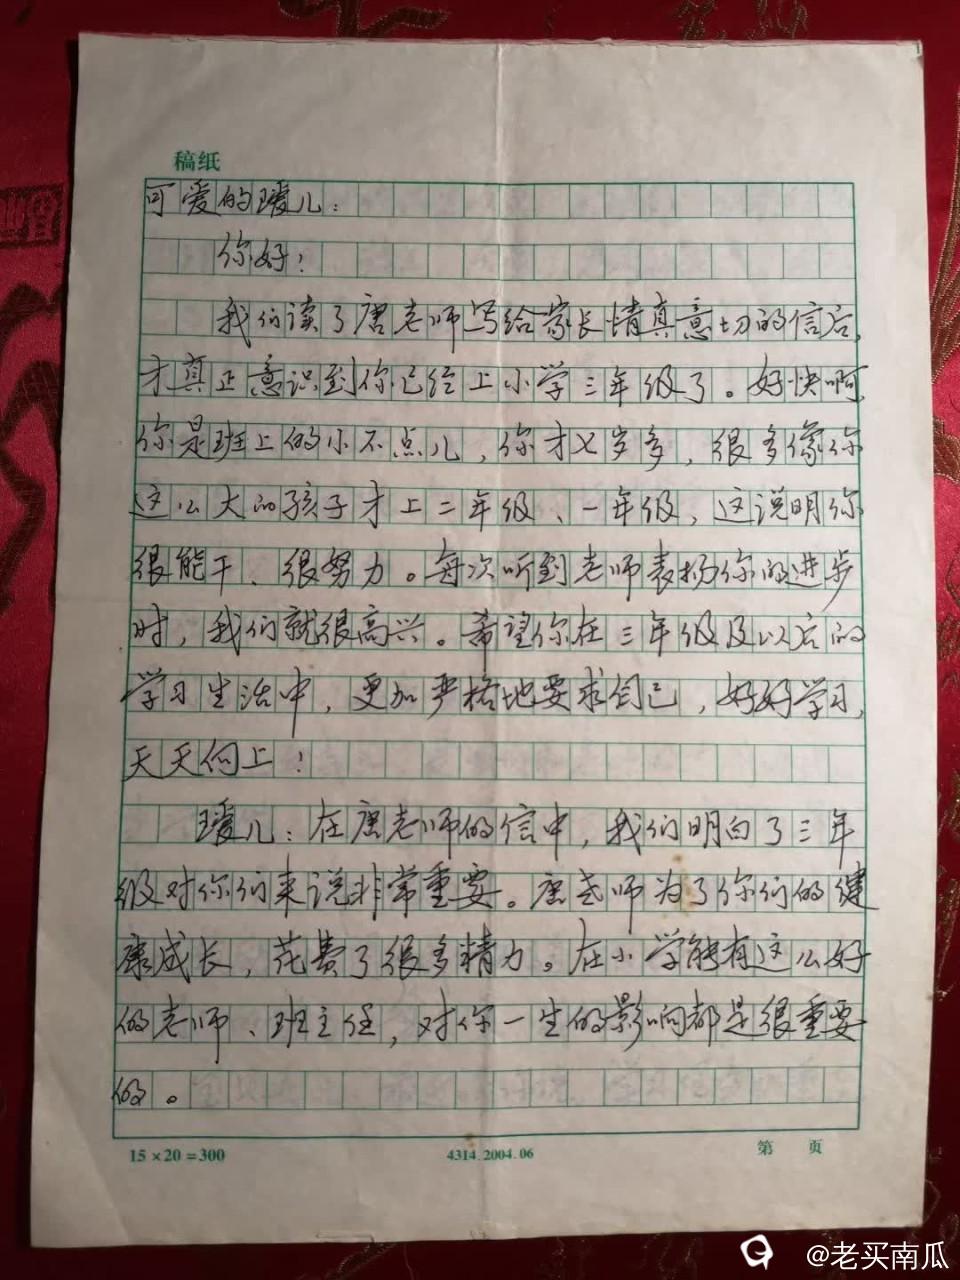 稿纸
可爱的瑷儿：
你好！
我们读了唐老师写给家长情真意切的信后，
才真正意识到你已经上小学三年级了。好快啊，
你是班上的小不点儿，你才七岁多，很多像你
这么大的孩子才上二年级、一年级，这说明你
很能干、很努力。每次听到老师表扬你的进步
时，我们就很高兴。希望你在三年级及以后的
学习生活中，更加严格地要求自己，好好学习，
天天向上！
瑷儿：在唐老师的信中，我们明白了三年
级对你们来说非常重要。唐老师为了你们的健
康成长，花费了很多精力。在小学能有这么好
的老师、班主任，对你一生的影响都是很重要
的。
15×20=300 4314.2004.06 第 页
@老买南瓜